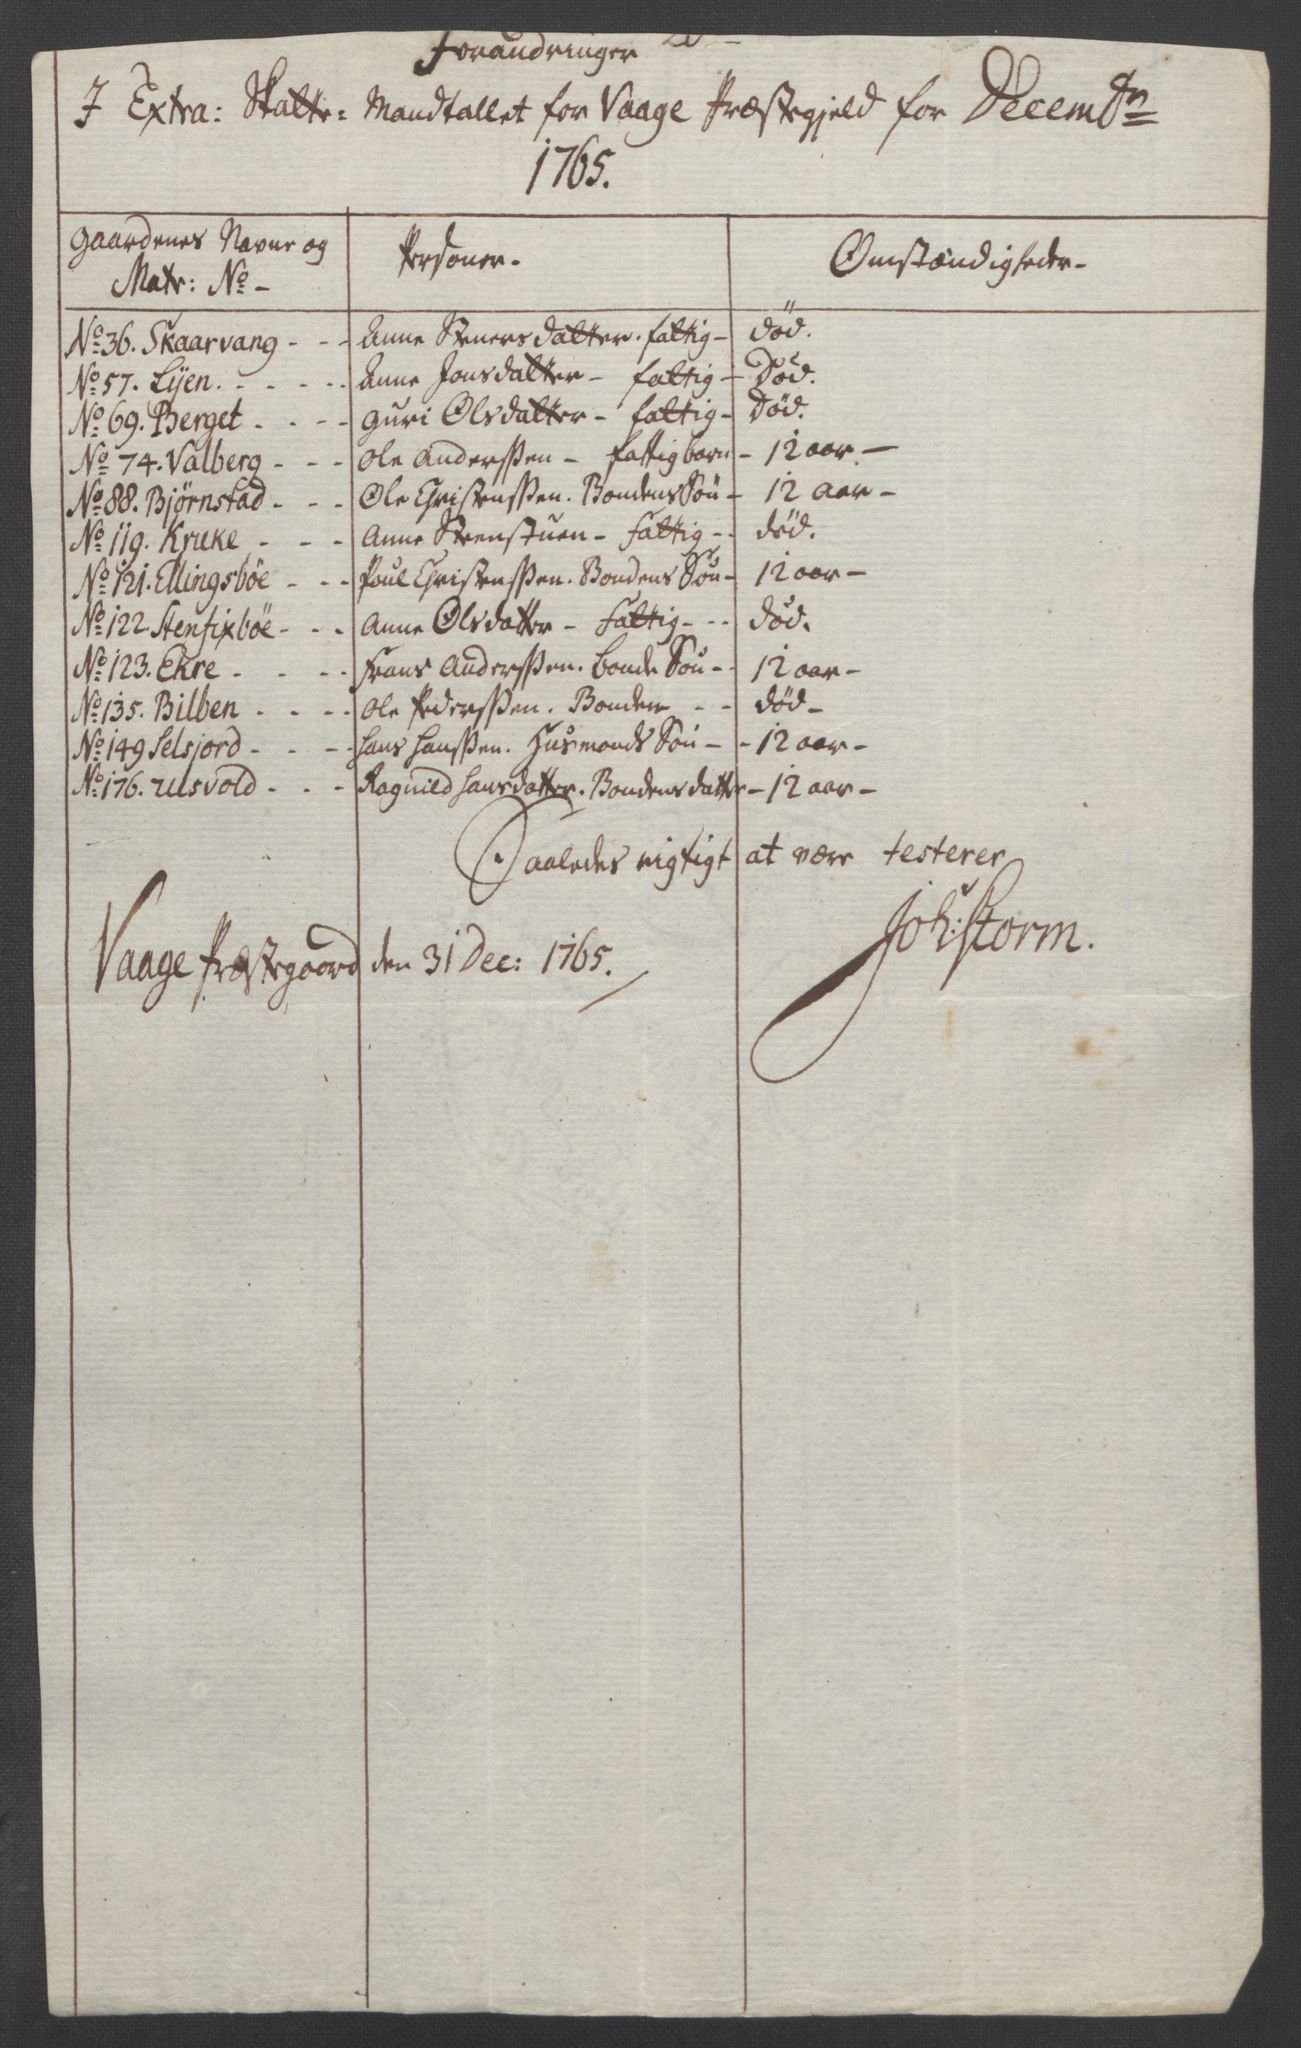 Forandringer
I Extra: Skatte= Mandtallet for Vaage Præstegjeld for Decembr
1765.
Gaardenes Navne og Matr: No - Personer. Omstændigheder -
No 36. Skaarvang - - - Anne Stenersdatter. fattig - død.
No 57. Lÿen. - - - - - Anne Jonsdatter - fattig - Død.
No 69. Berget - - - - Guri Olsdatter - fattig - Død.
No 74. Valberg - - - Ole Anderssen - fattig barn - 12 aar. -
No 88. Bjørnstad - - - Ole Christenssen. Bondens Søn - 12 aar -
No 119. Kruke - - - Anne Steenstuen - fattig - - død.
No 121. Ellingsbøe - - - Poul Christenssen. Bondens Søn - 12 aar -
No 122. Stenfixbøe - - - Anne Olsdatter - fattig - - - død.
No 123. Ekre - - - - Frans Anderssen. bonde Søn - - 12 aar -
No 135. Bilben - - - - Ole Pederssen. Bonden - - død -
No 149 Selsjord - - - - Hans Hanssen. Husmands Søn - - 12 aar -
No 176. Usvold - - - Ragnild Hansdatter. Bondens datter - 12 aar -
Saaledes rigtigt at være testerer
Vaage Præstegaard den 31 Dec: 1765. Joh: Storm.